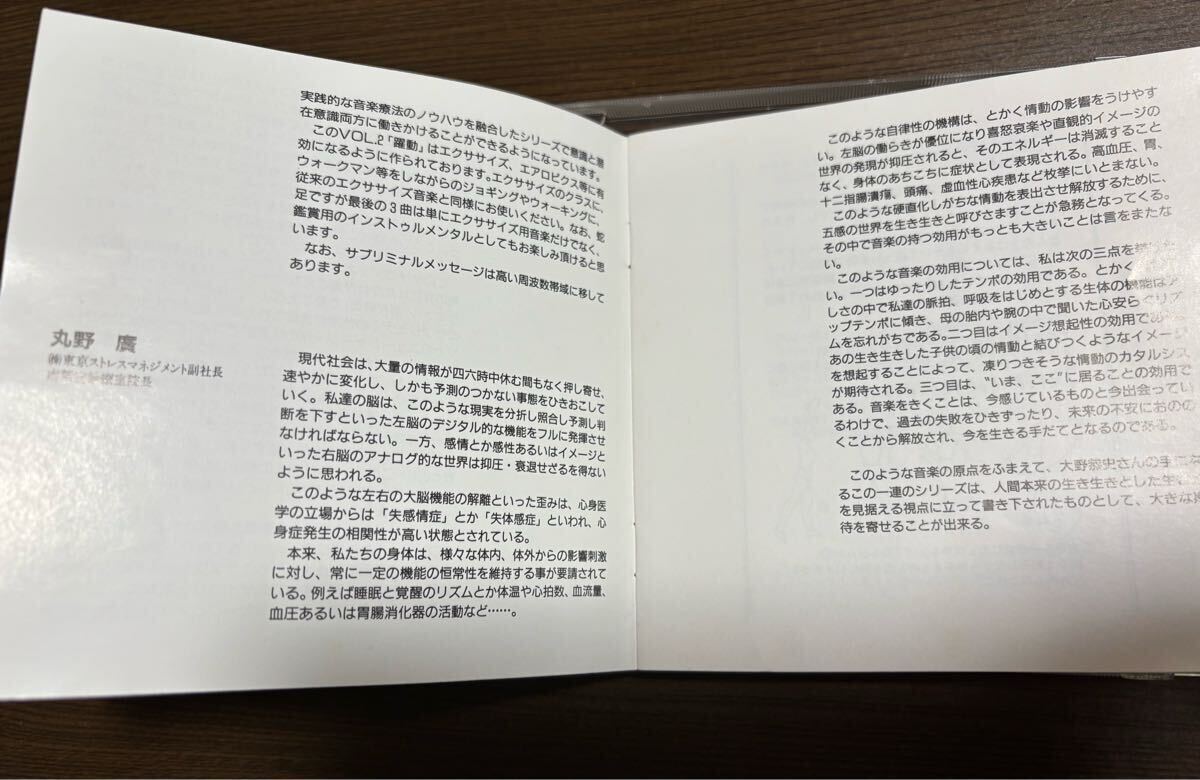 実践的な音楽療法のノウハウを融合したシリーズで意識と潜
在意識両方に働きかけることができるようになっています。
このVOL.2「躍動」はエクササイズ、エアロビクス等に有
効になるように作られております。エクササイズのクラスに、
ウォークマン等をしながらのジョギングやウォーキングに、
従来のエクササイズ音楽と同様にお使いください。なお、蛇
足ですが最後の3曲は単にエクササイズ用音楽だけでなく、
鑑賞用のインストゥルメンタルとしてもお楽しみ頂けると思
います。
なお、サブリミナルメッセージは高い周波数帯域に移して
あります。
丸野 廣
㈱東京ストレスマネジメント副社長
院長
現代社会は、大量の情報が四六時中休む間もなく押し寄せ、
速やかに変化し、しかも予測のつかない事態をひきおこして
いく。私達の脳は、このような現実を分折し照合し予測し判
断を下すといった左脳のデジタル的な機能をフルに発揮させ
なければならない。一方、感情とか感性あるいはイメージと
いった右脳のアナログ的な世界は抑圧・衰退せざるを得ない
ように思われる。
このような左右の大脳機能の解離といった歪みは、心身医
学の立場からは「失感情症」とか「失体感症」といわれ、心
身症発生の相関性が高い状態とされている。
本来、私たちの身体は、様々な体内、体外からの影響刺激
に対し、常に一定の機能の恒常性を維持する事が要請されて
いる。例えば睡眠と覚醒のリズムとか体温や心拍数、血流量、
血圧あるいは胃腸消化器の活動など……。
このような自律性の機構は、とかく情動の影響をうけやす
い。左脳の働らきが優位になり喜怒哀楽や直観的イメージの
世界の発現が抑圧されると、そのエネルギーは消滅すること
なく、身体のあちこちに症状として表現される。高血圧、胃、
十二指腸潰瘍、頭痛、虚血性心疾患など枚挙にいとまない。
このような硬直化しがちな情動を表出させ解放するために、
五感の世界を生き生きと呼びさますことが急務となってくる。
その中で音楽の持つ効用がもっとも大きいことは言をまたな
い。
このような音楽の効用については、私は次の三点を挙げ
い。一つはゆったりしたテンポの効用である。とかく
しさの中で私達の脈拍、呼吸をはじめとする生体の機能はア
ップテンポに傾き、母の胎内や腕の中で聞いた心安らぐリズ
ムを忘れがちである。二つ目はイメージ想起性の効用であ
あの生き生きした子供の頃の情動と結びつくようなイメージ
を想起することによって、凍りつきそうな情動のカタルシス
が期待される。三つ目は、“いま、ここ”に居ることの効用で
ある。音楽をきくことは、今感じているものと今出会ってい
るわけで、過去の失敗をひきずったり、未来の不安におのの
くことから解放され、今を生きる手だてとなるのである。
このような音楽の原点をふまえて、大野恭史さんの手にな
るこの一連のシリーズは、人間本来の生き生きとした生
を見据える視点に立って書き下されたものとして、大きな期
待を寄せることが出来る。